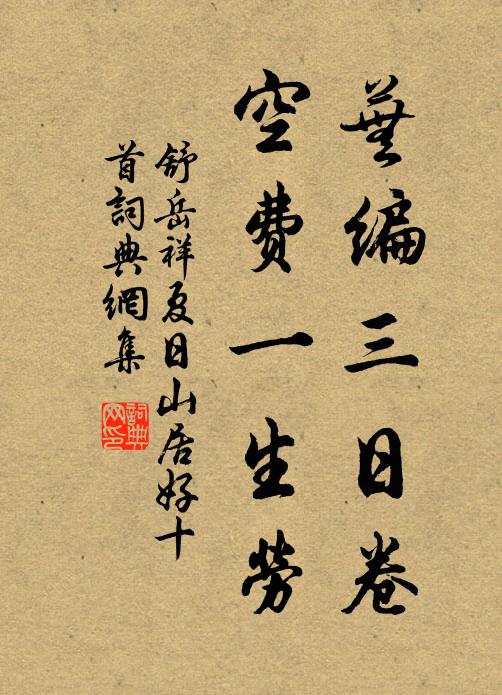 蕪編三日卷
空費一生勞
舒岳祥夏日山居好十
首詞典網集
詞典
网印